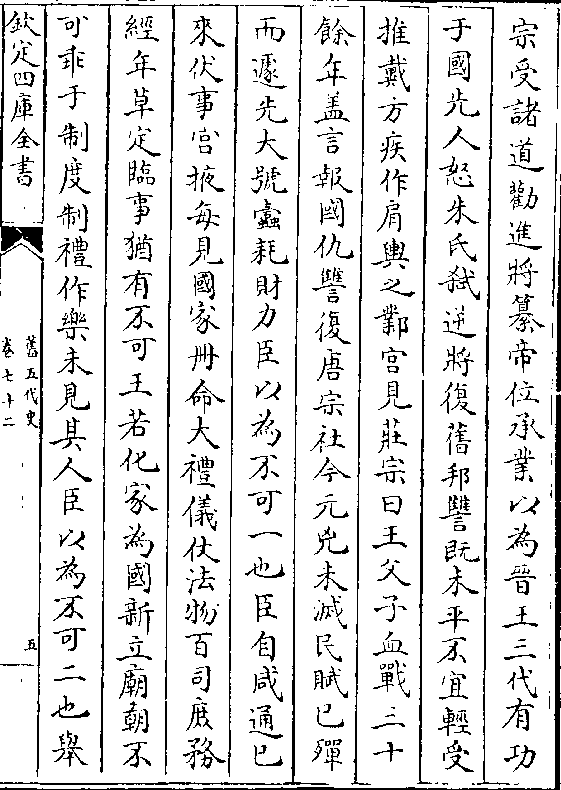 宗受諸道勸進將纂帝位承業以為晉王三代有功
于國先人怒朱氏弑逆將復舊邦讐既未平不宜輕受
推戴方疾作肩輿之鄴宫見莊宗曰王父子血戰三十
餘年盖言報國仇讐復唐宗社今元兇未滅民賦已殫
而遽先大號蠧耗財力臣以為不可一也臣自咸通已
來伏事宫掖每見國家册命大禮儀仗法物百司庶務
經年草定臨事猶有不可王若化家為國新立廟朝不
可乖于制度制禮作樂未見其人臣以為不可二也舉
欽定四庫全書
舊五代史
卷七十二
五